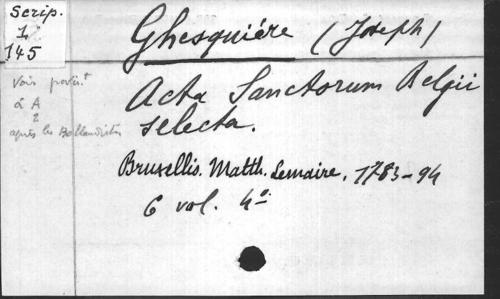 Scrip.
1.
145
Ghesquiére (Joseph)
Acta Sanctorum Belgii
selecta.
Bruxellis. Matth. Lemaire. 1783-94
6 vol. 4°.
à A
2
après les Bollandistes